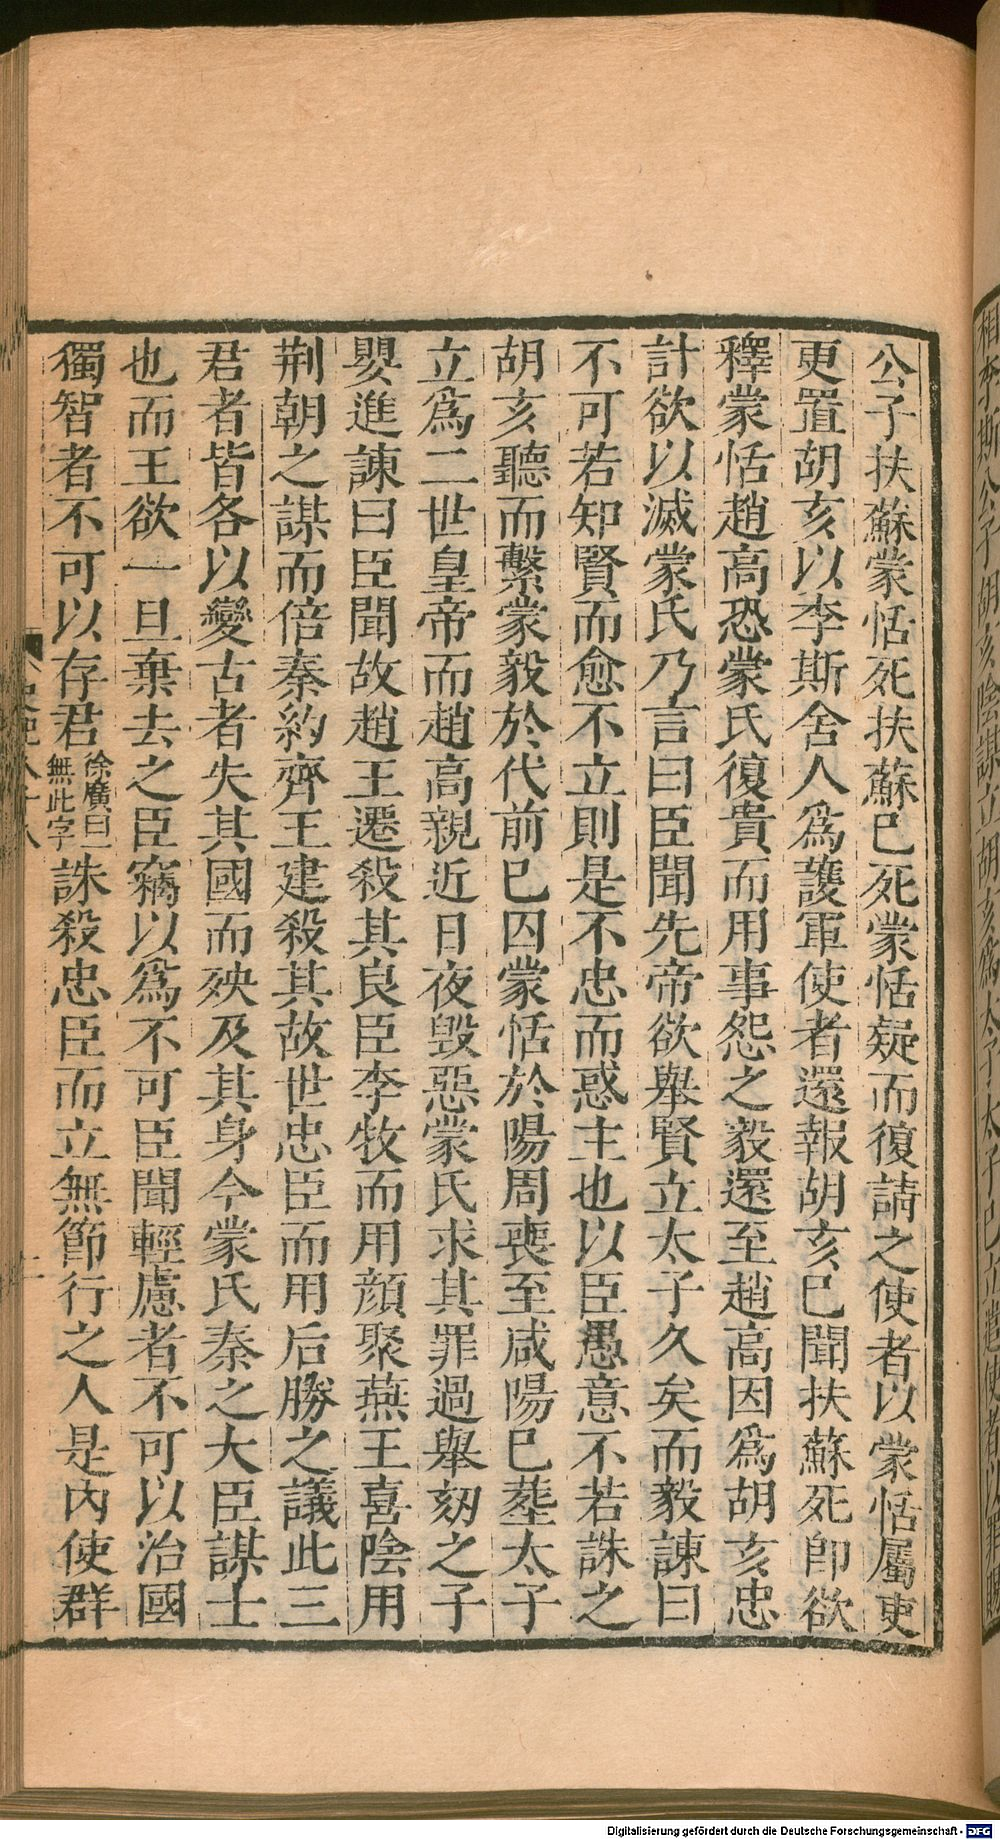 相李斯公子胡亥陰謀立胡亥爲太子太子已立遣使者以罪賜
公子扶蘇蒙恬死扶蘇已死蒙恬疑而復請之使者以蒙恬屬吏
更置胡亥以李斯舍人爲護軍使者還報胡亥已聞扶蘇死卽欲
釋蒙恬趙高恐蒙氏復貴而用事怨之毅還至趙高因爲胡亥忠
計欲以滅蒙氏乃言曰臣聞先帝欲舉賢立太子久矣而毅諫曰
不可若知賢而愈不立則是不忠而惑主也以臣愚意不若誅之
胡亥聽而繫蒙毅於代前已囚蒙恬於陽周喪至咸陽已葬太子
立爲二世皇帝而趙高親近日夜毀惡蒙氏求其罪過舉劾之子
嬰進諫曰臣聞故趙王遷殺其良臣李牧而用顔聚燕王喜陰用
荆朝之謀而倍秦約齊王建殺其故世忠臣而用后勝之議此三
君者皆各以變古者失其國而殃及其身今蒙氏秦之大臣謀士
也而王欲一旦棄去之臣竊以爲不可臣聞輕慮者不可以治國
獨智者不可以存君徐廣曰一無此字誅殺忠臣而立無節行之人是內使群
史記八十八
Digitalisierung gefördert durch die Deutsche Forschungsgemeinschaft - DFG